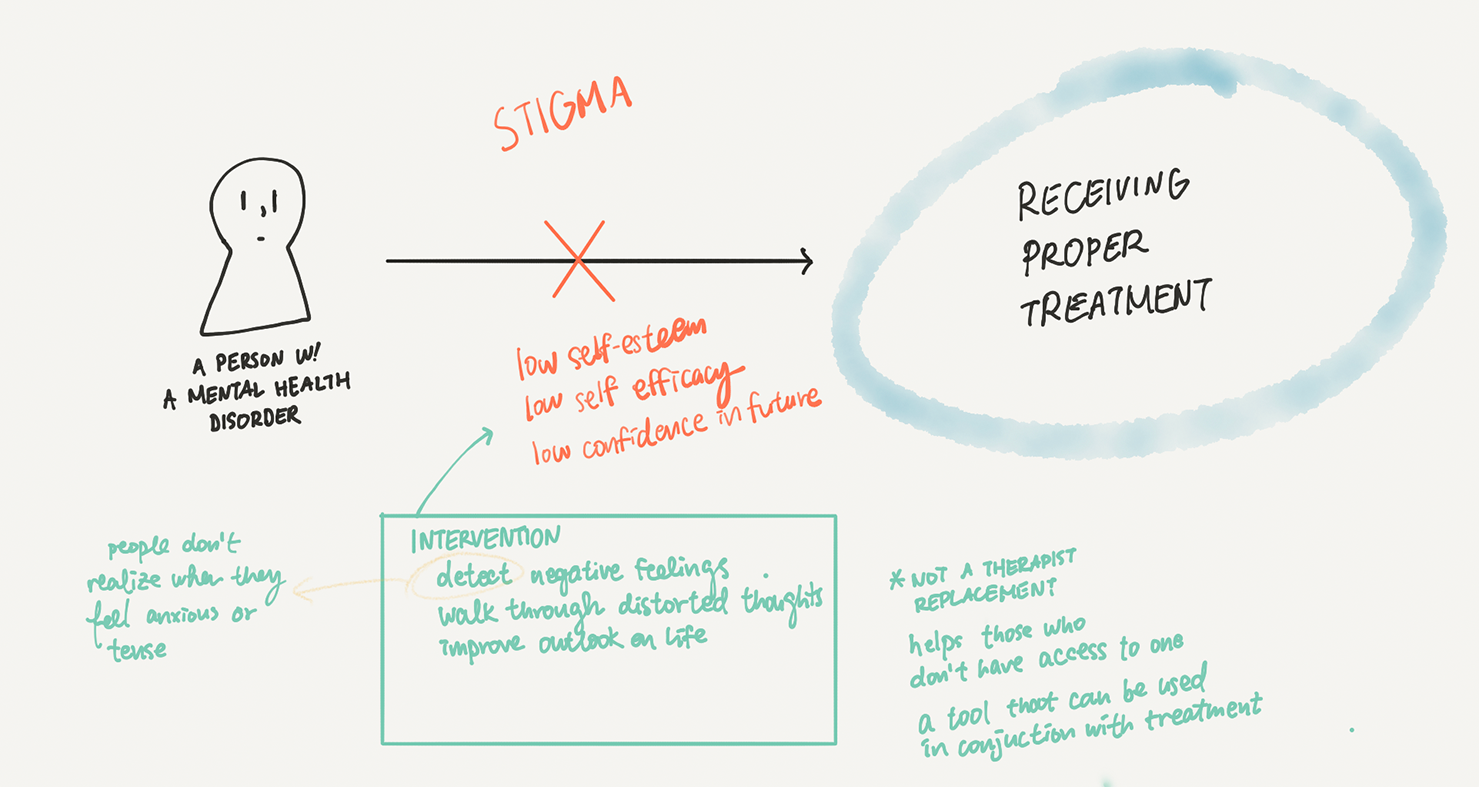 STIGMA
A PERSON W!
A MENTAL HEALTH
DISORDER
RECEIVING
PROPER
TREATMENT
low self-esteem
low self efficacy
low confidence in future
people don't
realize when they
feel anxious or
tense
INTERVENTION
detect negative feelings
walk through distorted thoughts
improve outlook on life
* NOT A THERAPIST
REPLACEMENT
helps those who
don't have access to one
a tool thoot can be used
in conjuction with treatment